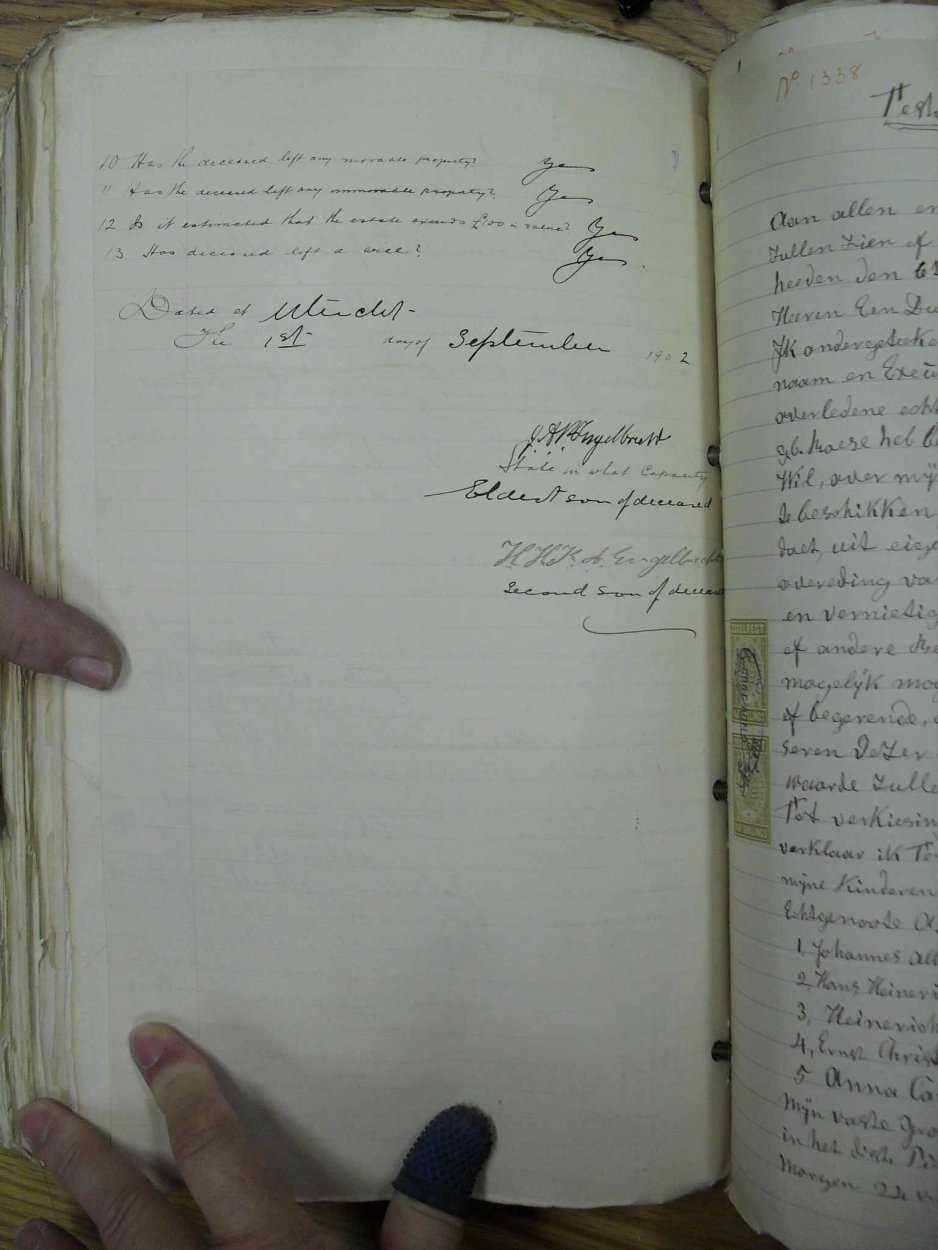 10 Has the deceased left any movable property? Yes
11 Has the deceased left any immovable property? Yes
12 Is it estimated that the estate exceeds £100 in value? Yes
13 Has deceased left a will? Yes
Dated at Utrecht
The 1st day of September 1902
Engelbrecht
State in what Capacity
Eldest son of deceased
H.H.K.A. Engelbrecht
Second son of deceased
No. 1338
Aan allen en
Zullen Zien of
heeden den
Heeren Een Du
Ik ondergeteke
naam en Exec
overledene echt
heb
Wil, over mij
te beschikken
dat, uit eige
overeding va
en vernietig
of andere
mogelijk mog
of begerende,
seren Dezer
waarde Zulle
Tot verkiesin
verklaar ik Te
mijne Kinderen
Echtgenoote
1, Johannes Alb
2, Hans Heineri
3, Heinerich
4, Ernst Christ
5 Anna Ca
Mijn vaste Gro
in het distr
Morgen